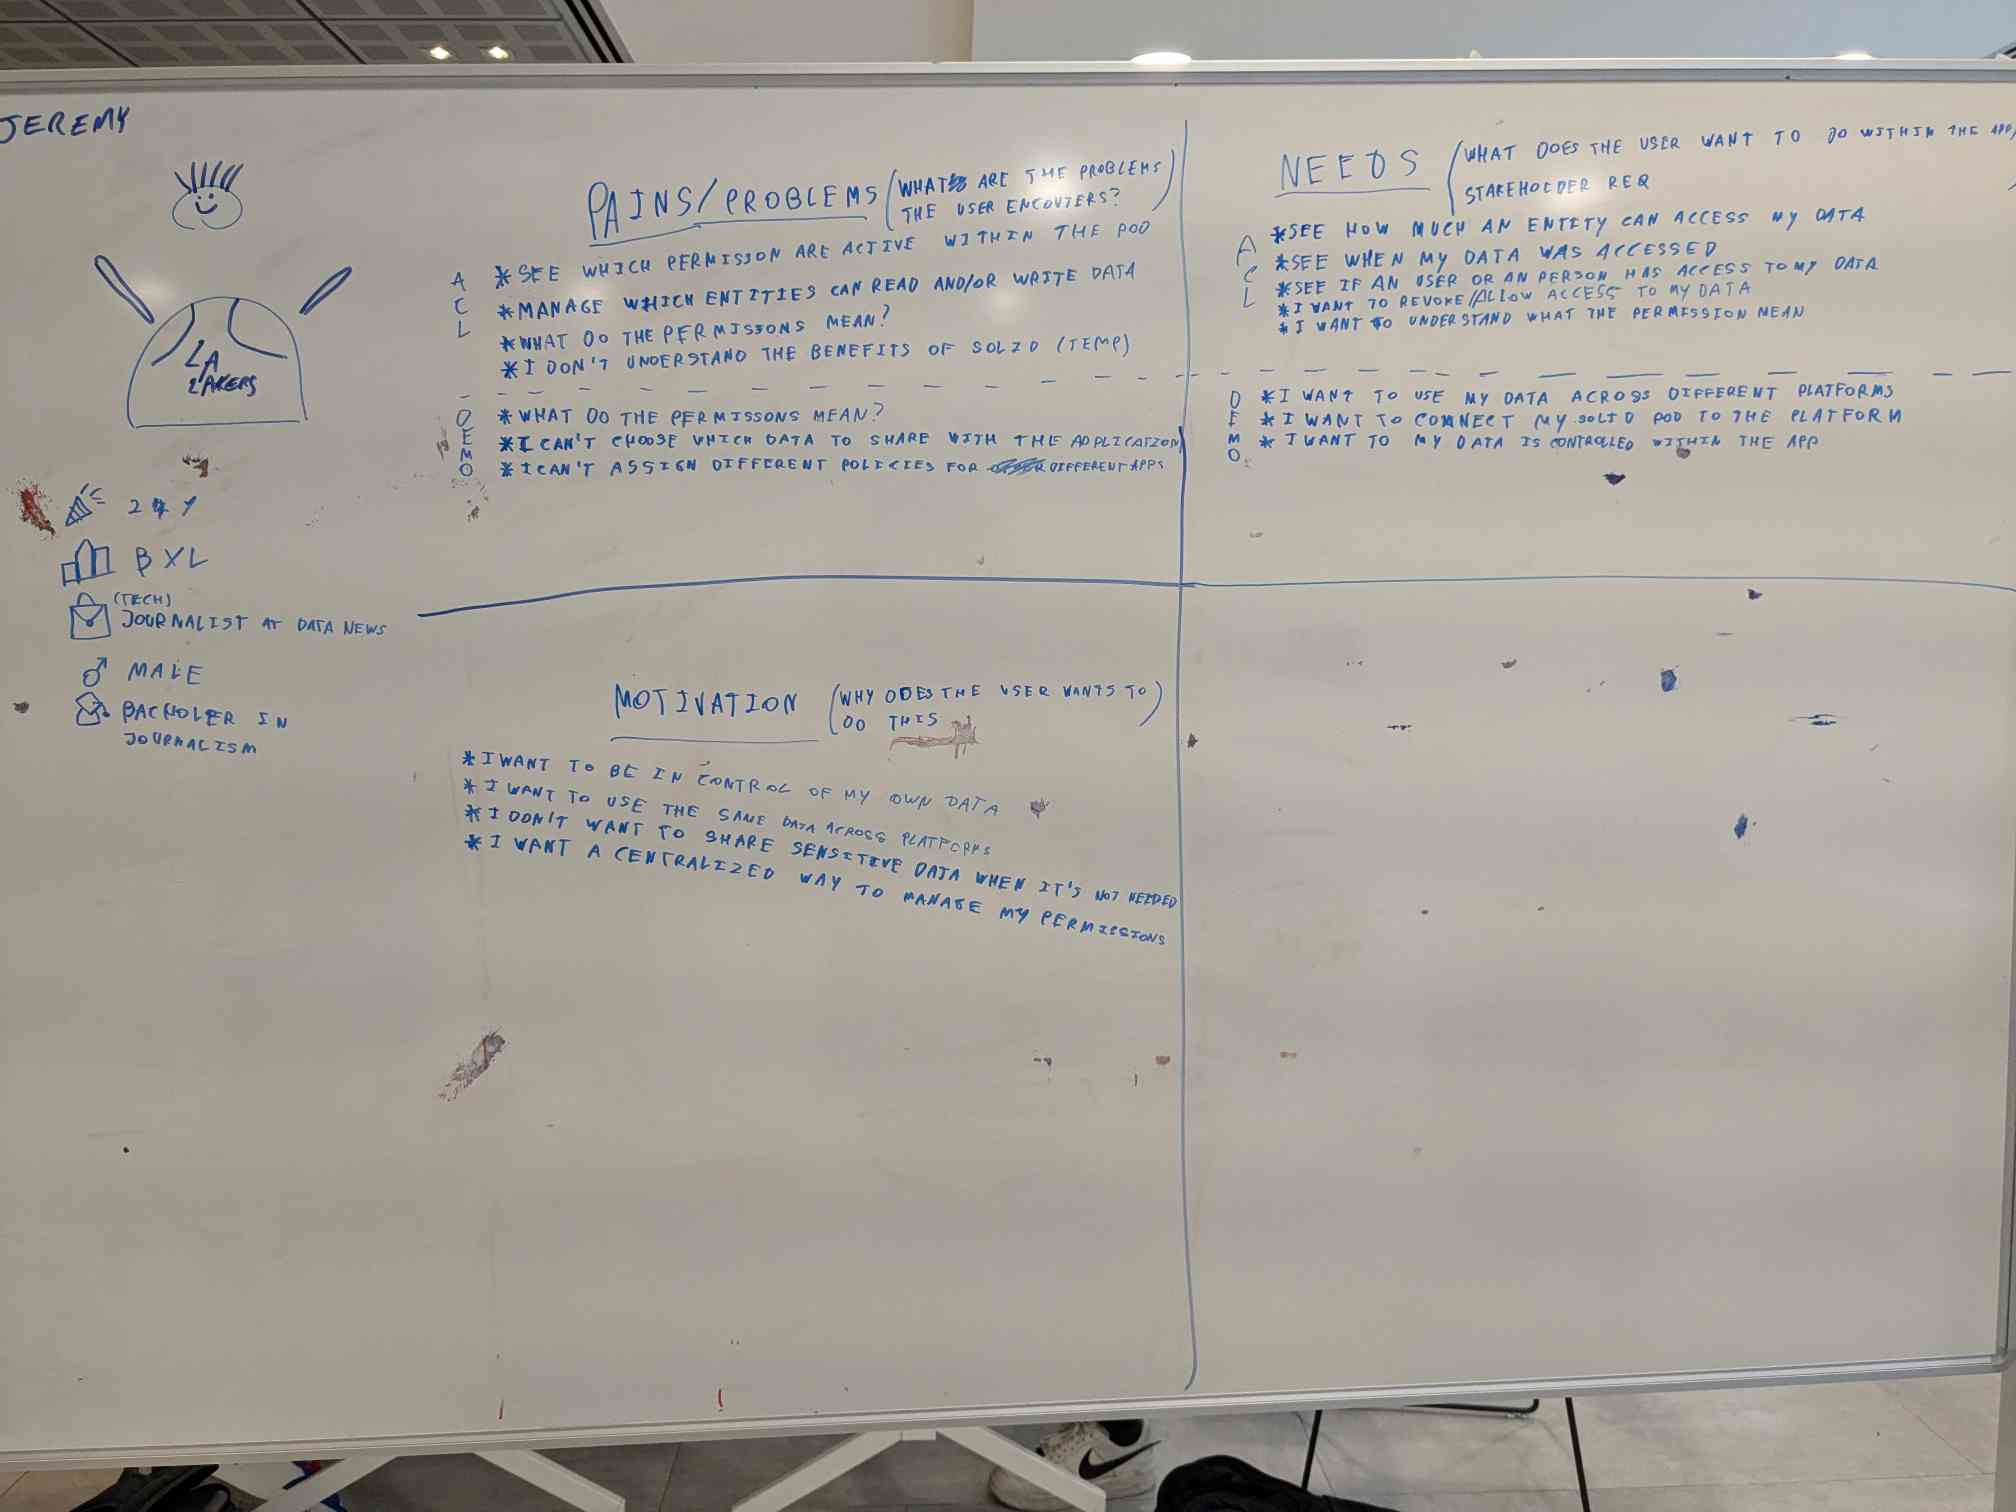 JEREMY
LA
LAKERS
BXL
(TECH)
JOURNALIST AT DATA NEWS
MALE
BACHOLER IN
JOURNALISM
PAINS/PROBLEMS (WHAT ARE THE PROBLEMS
THE USER ENCOUTERS?)
ACL
*SEE WHICH PERMISSON ARE ACTIVE WITHIN THE POD
*MANAGE WHICH ENTITIES CAN READ AND/OR WRITE DATA
*WHAT DO THE PERMISSONS MEAN?
*I DON'T UNDERSTAND THE BENEFITS OF SOLID (TEMP)
DEMO
*WHAT DO THE PERMISSONS MEAN?
*I CAN'T CHOOSE WHICH DATA TO SHARE WITH THE APPLICATION
*I CAN'T ASSIGN DIFFERENT POLICIES FOR DIFFERENT APPS
NEEDS (WHAT DOES THE USER WANT TO DO WITHIN THE APP
STAKEHOLDER REQ
ACL
*SEE HOW MUCH AN ENTITY CAN ACCESS MY DATA
*SEE WHEN MY DATA WAS ACCESSED
*SEE IF AN USER OR AN PERSON HAS ACCESS TO MY DATA
*I WANT TO REVOKE/ALLOW ACCESS TO MY DATA
*I WANT TO UNDERSTAND WHAT THE PERMISSION MEAN
DEMO
*I WANT TO USE MY DATA ACROSS DIFFERENT PLATFORMS
*I WANT TO CONNECT MY SOLID POD TO THE PLATFORM
*I WANT TO MY DATA IS CONTROLLED WITHIN THE APP
MOTIVATION (WHY DOES THE USER WANTS TO
DO THIS)
*I WANT TO BE IN CONTROL OF MY OWN DATA
*I WANT TO USE THE SAME DATA ACROSS PLATFORMS
*I DON'T WANT TO SHARE SENSITIVE DATA WHEN IT'S NOT NEEDED
*I WANT A CENTRALIZED WAY TO MANAGE MY PERMISSIONS